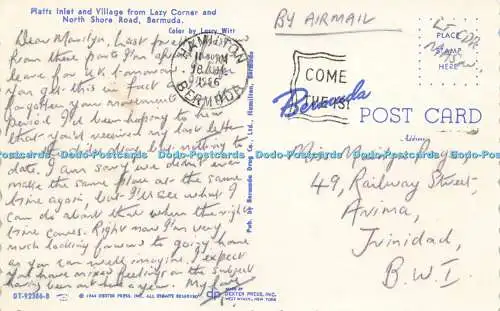 Flatts Inlet and Village from Lazy Corner and
North Shore Road, Bermuda.
Color by Larry Witt
BY AIRMAIL
PLACE
STAMP
HERE
HAMILTON
BERMUDA
COME
Bermuda
POST CARD
Dear Marilyn, last
from these parts I'm
leave for U.K. tomorrow.
You get this in
forgotten your movements
period I've been hoping to hear
that you'd received my last letter
date. I am sorry we didn't even
make the same place at the same
time again, but I'll see what I
can do about that when the right
time comes. Right now I'm very
much looking forward to going home
as you can well imagine. I expect
you have mixed feelings on the subject
having been out here a year. My
Pub. by Bermuda Drug Co., Ltd., Hamilton, Bermuda
Dodo-Postcards Dodo-Postcards Dodo-Postcards Dodo-Postcards Dodo-Postcards
Address
49, Railway Street,
Arima,
Trinidad,
B.W.I.
DT-92386-B
© 1964 DEXTER PRESS, INC. ALL RIGHTS RESERVED
MADE BY
DEXTER PRESS, INC.
WEST NYACK, NEW YORK